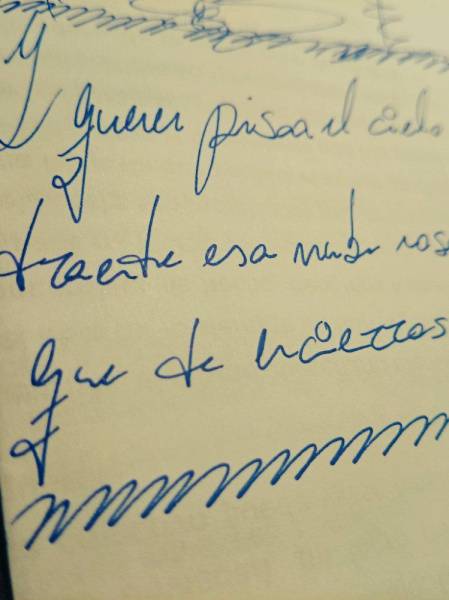 Y querer pisar el cielo
traerte esa nube rosa
que te hicieras